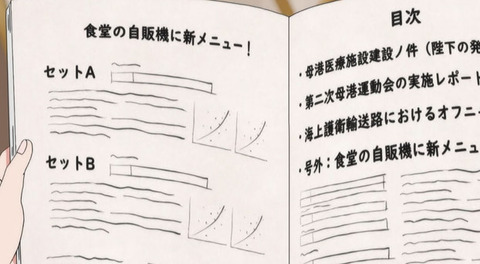 食堂の自販機に新メニュー!
セットA
セットB
目次
・母港医療施設建設ノ件(陛下の発
・第二次母港運動会の実施レポート
・海上護衛輸送路におけるオフニ
・号外:食堂の自販機に新メニュ